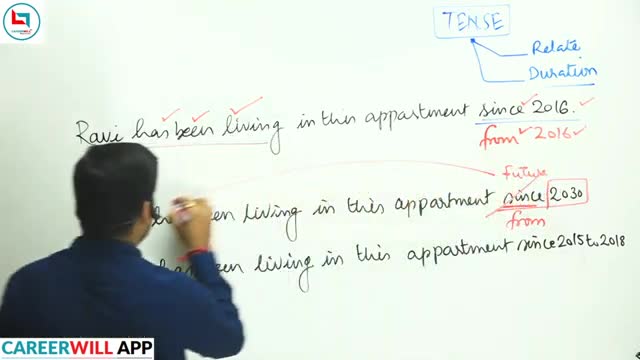 CAREERWILL
TENSE
Relate
Duration
Ravi has been living in this appartment since 2016.
from 2016
future
been living in this appartment since 2030
from
been living in this appartment since 2015 to 2018
CAREERWILL APP
CAREERWILL APP